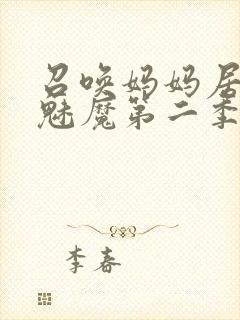 召唤妈妈居
魅魔第二季
李春